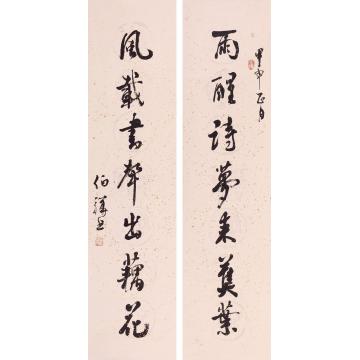 甲申正月
雨醒詩夢来蕉葉
風載書聲出藕花
伯祥书